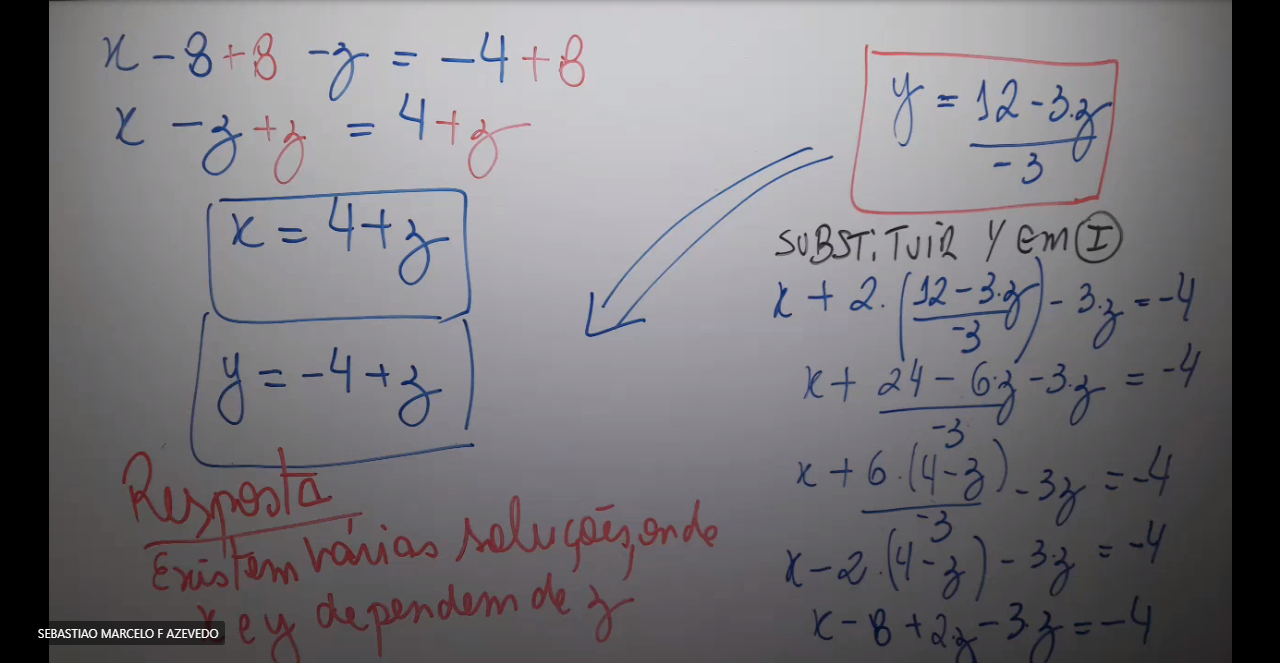 x - 8 + 8 - z = -4 + 8
x - z + z = 4 + z
x = 4 + z
y = -4 + z
Resposta
Existem várias soluções, onde
x e y dependem de z
y = 12 - 3.z
-3
SUBSTITUIR Y EM I
x + 2.(12 - 3.z) - 3.z = -4
-3
x + 24 - 6.z - 3.z = -4
-3
x + 6.(4 - z) - 3z = -4
-3
x - 2.(4 - z) - 3z = -4
x - 8 + 2.z - 3.z = -4
SEBASTIAO MARCELO F AZEVEDO